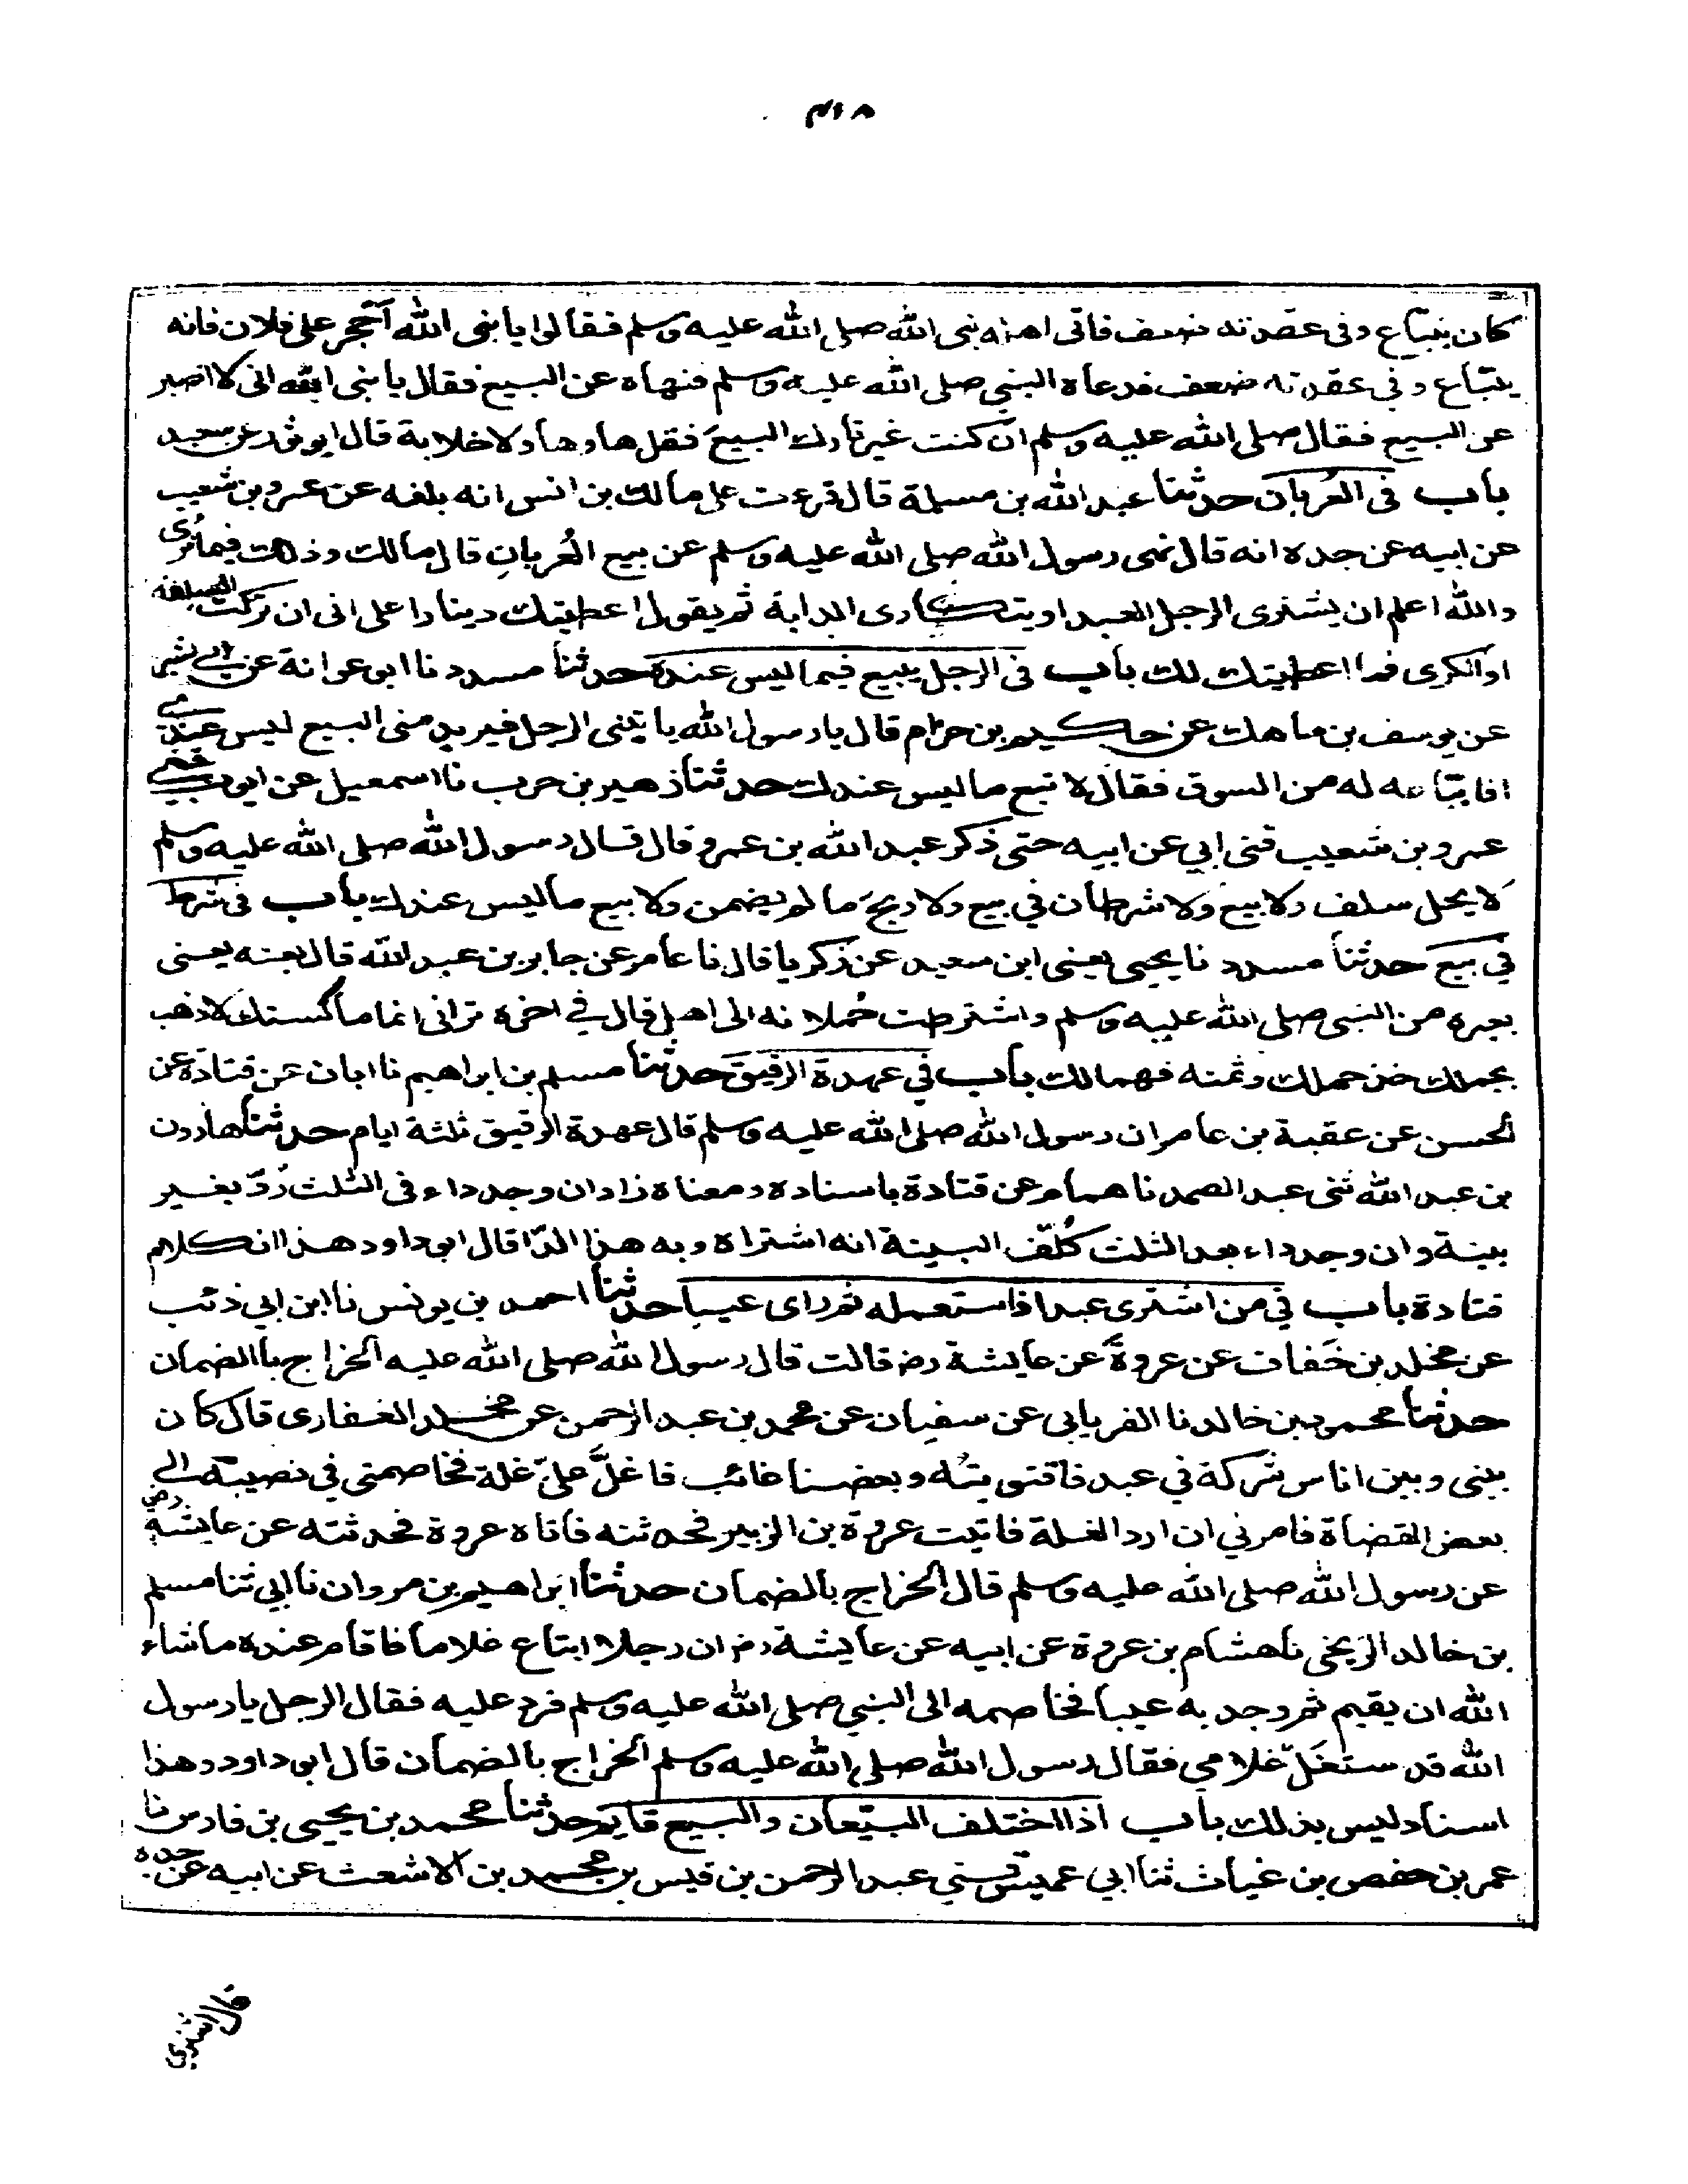 ٣١٨
كان يبتاع وفى عقدته ضعف فاتى اهله نبى الله صلى الله عليه وسلم فقالوا يا نبى الله آحجر على فلان فانه
يبتاع وفي عقدته ضعف فدعاه النبي صلى الله عليه وسلم فنهاه عن البيع فقال يا نبى الله انى لا اصبر
عن البيع فقال صلى الله عليه وسلم ان كنت غير تارك البيعَ فقل هاء وهاء ولا خلابة قال ابو ثور عن سعيد
باب في العُربان حدثنا عبد الله بن مسلمة قال قرءت على مالك بن انس انه بلغه عن عمرو بن شعيب
عن ابيه عن جده انه قال نهى رسول الله صلى الله عليه وسلم عن بيع العُربانِ قال مالك وذلك فيما نُرى
والله اعلم ان يشترى الرجل العبد او يتكارى الدابة ثم يقول اعطيتك دينارا على انى ان تركت السلعة
او الكرى فما اعطيتك لك باب فى الرجل يبيع فيما ليس عنده حدثنا مسدد نا ابو عوانة عن ابي بشير
عن يوسف بن ماهك عن حكيم بن حزام قال يا رسول الله يا يتنى الرجل فيريد منى البيع ليس عندي
افابتاعه له من السوق فقال لا تبع ما ليس عندك حدثنا زهير بن حرب نا اسمعيل عن ايوب ثنى
عمرو بن شعيب ثنى ابي عن ابيه حتى ذكر عبد الله بن عمرو قال قال رسول الله صلى الله عليه وسلم
لا يحل سلف ولا بيع ولا شرطان في بيع ولا ربحَ ما لم يضمن ولا بيع ما ليس عندك باب فى شرط
في بيع حدثنا مسدد نا يحيى يعنى ابن سعيد عن زكريا قال نا عامر عن جابر بن عبد الله قال بعته يعنى
بعيره من النبى صلى الله عليه وسلم واشترطت حُملانه الى اهلى قال في اخره ترانى انما ماكستك لاذهب
بجملك خذ جملك وثمنه فهما لك باب في عهدة الرقيق حدثنا مسلم بن ابراهيم نا ابان عن قتادة عن
الحسن عن عقبة بن عامر ان رسول الله صلى الله عليه وسلم قال عهدة الرقيق ثلثة ايام حدثنا هارون
بن عبد الله ثنى عبد الصمد نا همام عن قتادة باسناده ومعناه زاد ان وجد داء فى الثلث رُدّ بغير
بينة وان وجد داء بعد الثلث كُلّف البينة انه اشتراه وبه هذا الدّا قال ابو داود هذا ان كلام
قتادة باب في من اشترى عبدا فاستعمله ثم راى عيبا حدثنا احمد بن يونس نا ابن ابي ذئب
عن مخلد بن خَفاف عن عروةَ عن عايشة رضـ قالت قال رسول الله صلى الله عليه الخراج باالضمان
حدثنا محمود بن خالد نا الفريابى عن سفيان عن محمد بن عبد الرحمن عن مخلد الغفارى قال كان
بينى وبين اناس شركة في عبد فاقتويتُه وبعضنا غائب فاغلّ علىّ غلة فخاصمنى في نصيبه الى
بعض القضاة فامرني ان ارد الغلة فاتيت عروة بن الزبير فحدثته فاتاه عروة فحدثته عن عايشة رضي
عن رسول الله صلى الله عليه وسلم قال الخراج بالضمان حدثنا ابراهيم بن مروان نا ابي ثنا مسلم
بن خالد الزنجي نا هشام بن عروة عن ابيه عن عايشة رضـ ان رجلا ابتاع غلاما فاقام عنده ما شاء
الله ان يقيم ثم وجد به عيبا فخاصمه الى النبي صلى الله عليه وسلم فرد عليه فقال الرجل يا رسول
الله قد ستغَلّ غلامي فقال رسول الله صلى الله عليه وسلم الخراج بالضمان قال ابو داود وهذا
اسناد ليس بذلك باب اذا اختلف البيّعان والبيع قايم حدثنا محمد بن يحيى بن فارس نا
عمر بن حفص بن غياث ثنا ابي عن عميس ثني عبد الرحمن بن قيس بن محمد بن الاشعث عن ابيه عن جده
قال اشترى